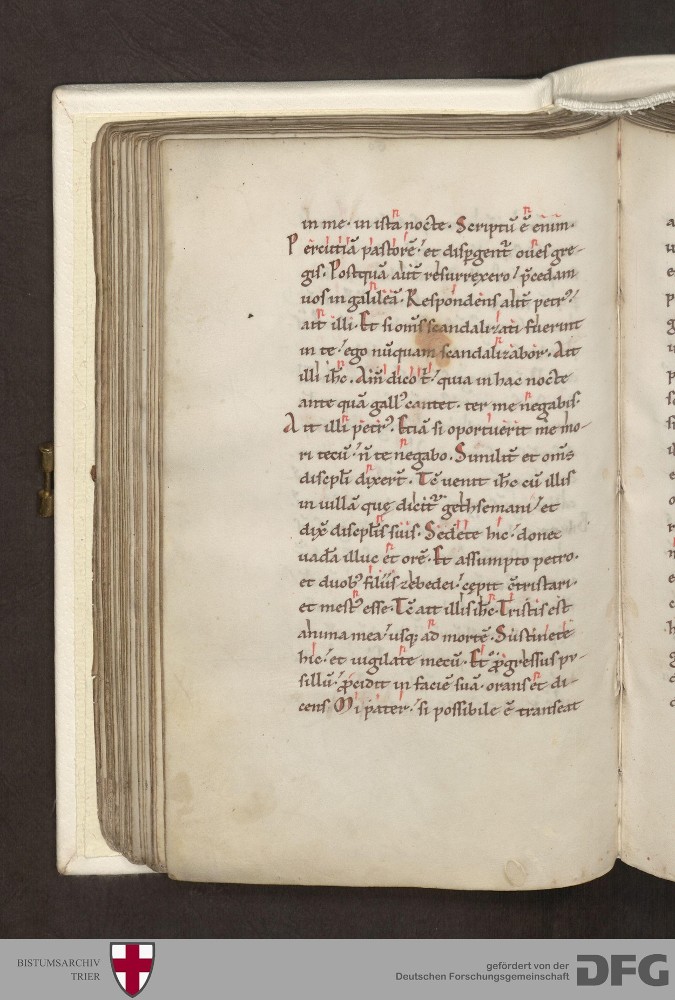 in me· in ista nocte· Scriptū ē enim·
Percutiā pastorē· et dispgent̄ oues gre-
gis· Postquā aut̄ resurrexero· p̄cedam
uos in galileā· Respondens aut̄ petrꝰ
ait illi· Et si om̄s scandalizati fuerint
in te· ego nūquam scandalizabor· Ait
illi ih̄c· Am̄ dico t̄· quia in hac nocte
ante quā gallꝰ cantet· ter me negabis·
Ait illi petrꝰ· Etiā si oportuerit me mo-
ri tecū· n̄ te negabo· Similit̄ et om̄s
discipl̄i dixert̄· Tē uenit ih̄c cū illis
in uillā que dicit̄ gethsemani· et
dix̄ discipl̄is suis· Sedete hic· donec
uadā illuc et orē· Et assumpto petro·
et duobꝰ filiis zebedei· cepit ētristari·
et mestꝰ esse· Tē ait illis ih̄c· Tristis est
anima mea· usq; ad mortē· Sustinete
hic· et uigilate mecū· Et ꝓgressus pu-
sillū· ꝓcidit in faciē suā· orans et di-
cens· Mi pater· si possibile ē transeat
BISTUMSARCHIV
TRIER
gefördert von der
Deutschen Forschungsgemeinschaft
DFG